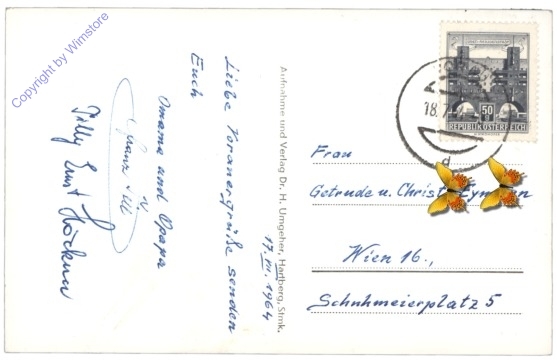 Copyright by Wimstore
Liebe Voranergrüße senden
Euch
Omama und Opapa
17. VII. 1964
Aufnahme und Verlag Dr. H. Umgeher, Hartberg, Stmk.
50 g
REPUBLIK ÖSTERREICH
18.7
d
Frau
Getrude u. Christl
Wien 16.,
Schuhmeierplatz 5